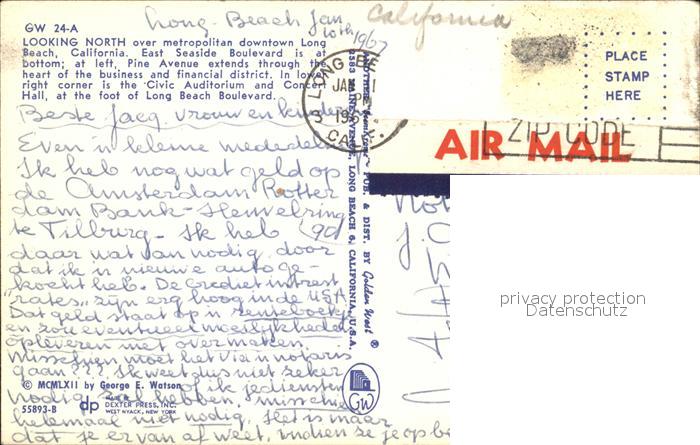 Long-Beach Jan
10th 1967
California
GW 24-A
LOOKING NORTH over metropolitan downtown Long
Beach, California. East Seaside Boulevard is at
bottom; at left, Pine Avenue extends through the
heart of the business and financial district. In lower
right corner is the Civic Auditorium and Concert
Hall, at the foot of Long Beach Boulevard.
PLACE
STAMP
HERE
LONG BE
JAN
PM
196
CA
ZIP CODE
AIR MAIL
Beste Jacq, vrouw en kinderen
Even 'n kleine mededeli
Ik heb nog wat geld op
de Amsterdam Rotter
dam Bank-Heuvelring
te Tilburg - Ik heb (90)
daar wat van nodig, door
dat ik 'n nieuwe auto ge-
kocht heb. De crediet intrest
"rates" zijn erg hoog in de USA
Dat geld staat op 'n renteboekje
en zou eventueel moeilijkheden
opleveren met overmaken.
Misschien moet het via 'n notaris
gaan??? Ik weet dus niet zeker
of ik je diensten
nodig zal hebben, misschien
helemaal niet nodig. Het is maar
dat je er van af weet, indien ze je op be
© MCMLXII by George E. Watson
55893-B
dp
DEXTER PRESS, INC.
WEST NYACK, NEW YORK
PUB. & DIST. BY Golden West ®
LONG BEACH 6, CALIFORNIA, U.S.A.
GW
privacy protection
Datenschutz